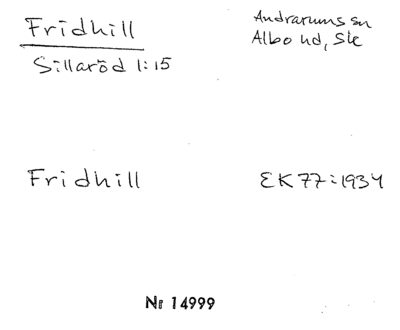 Fridhill
Andrarums sn
Albo hd, Sk
Sillaröd 1:15
Fridhill
EK 77:1934
Nº 14999